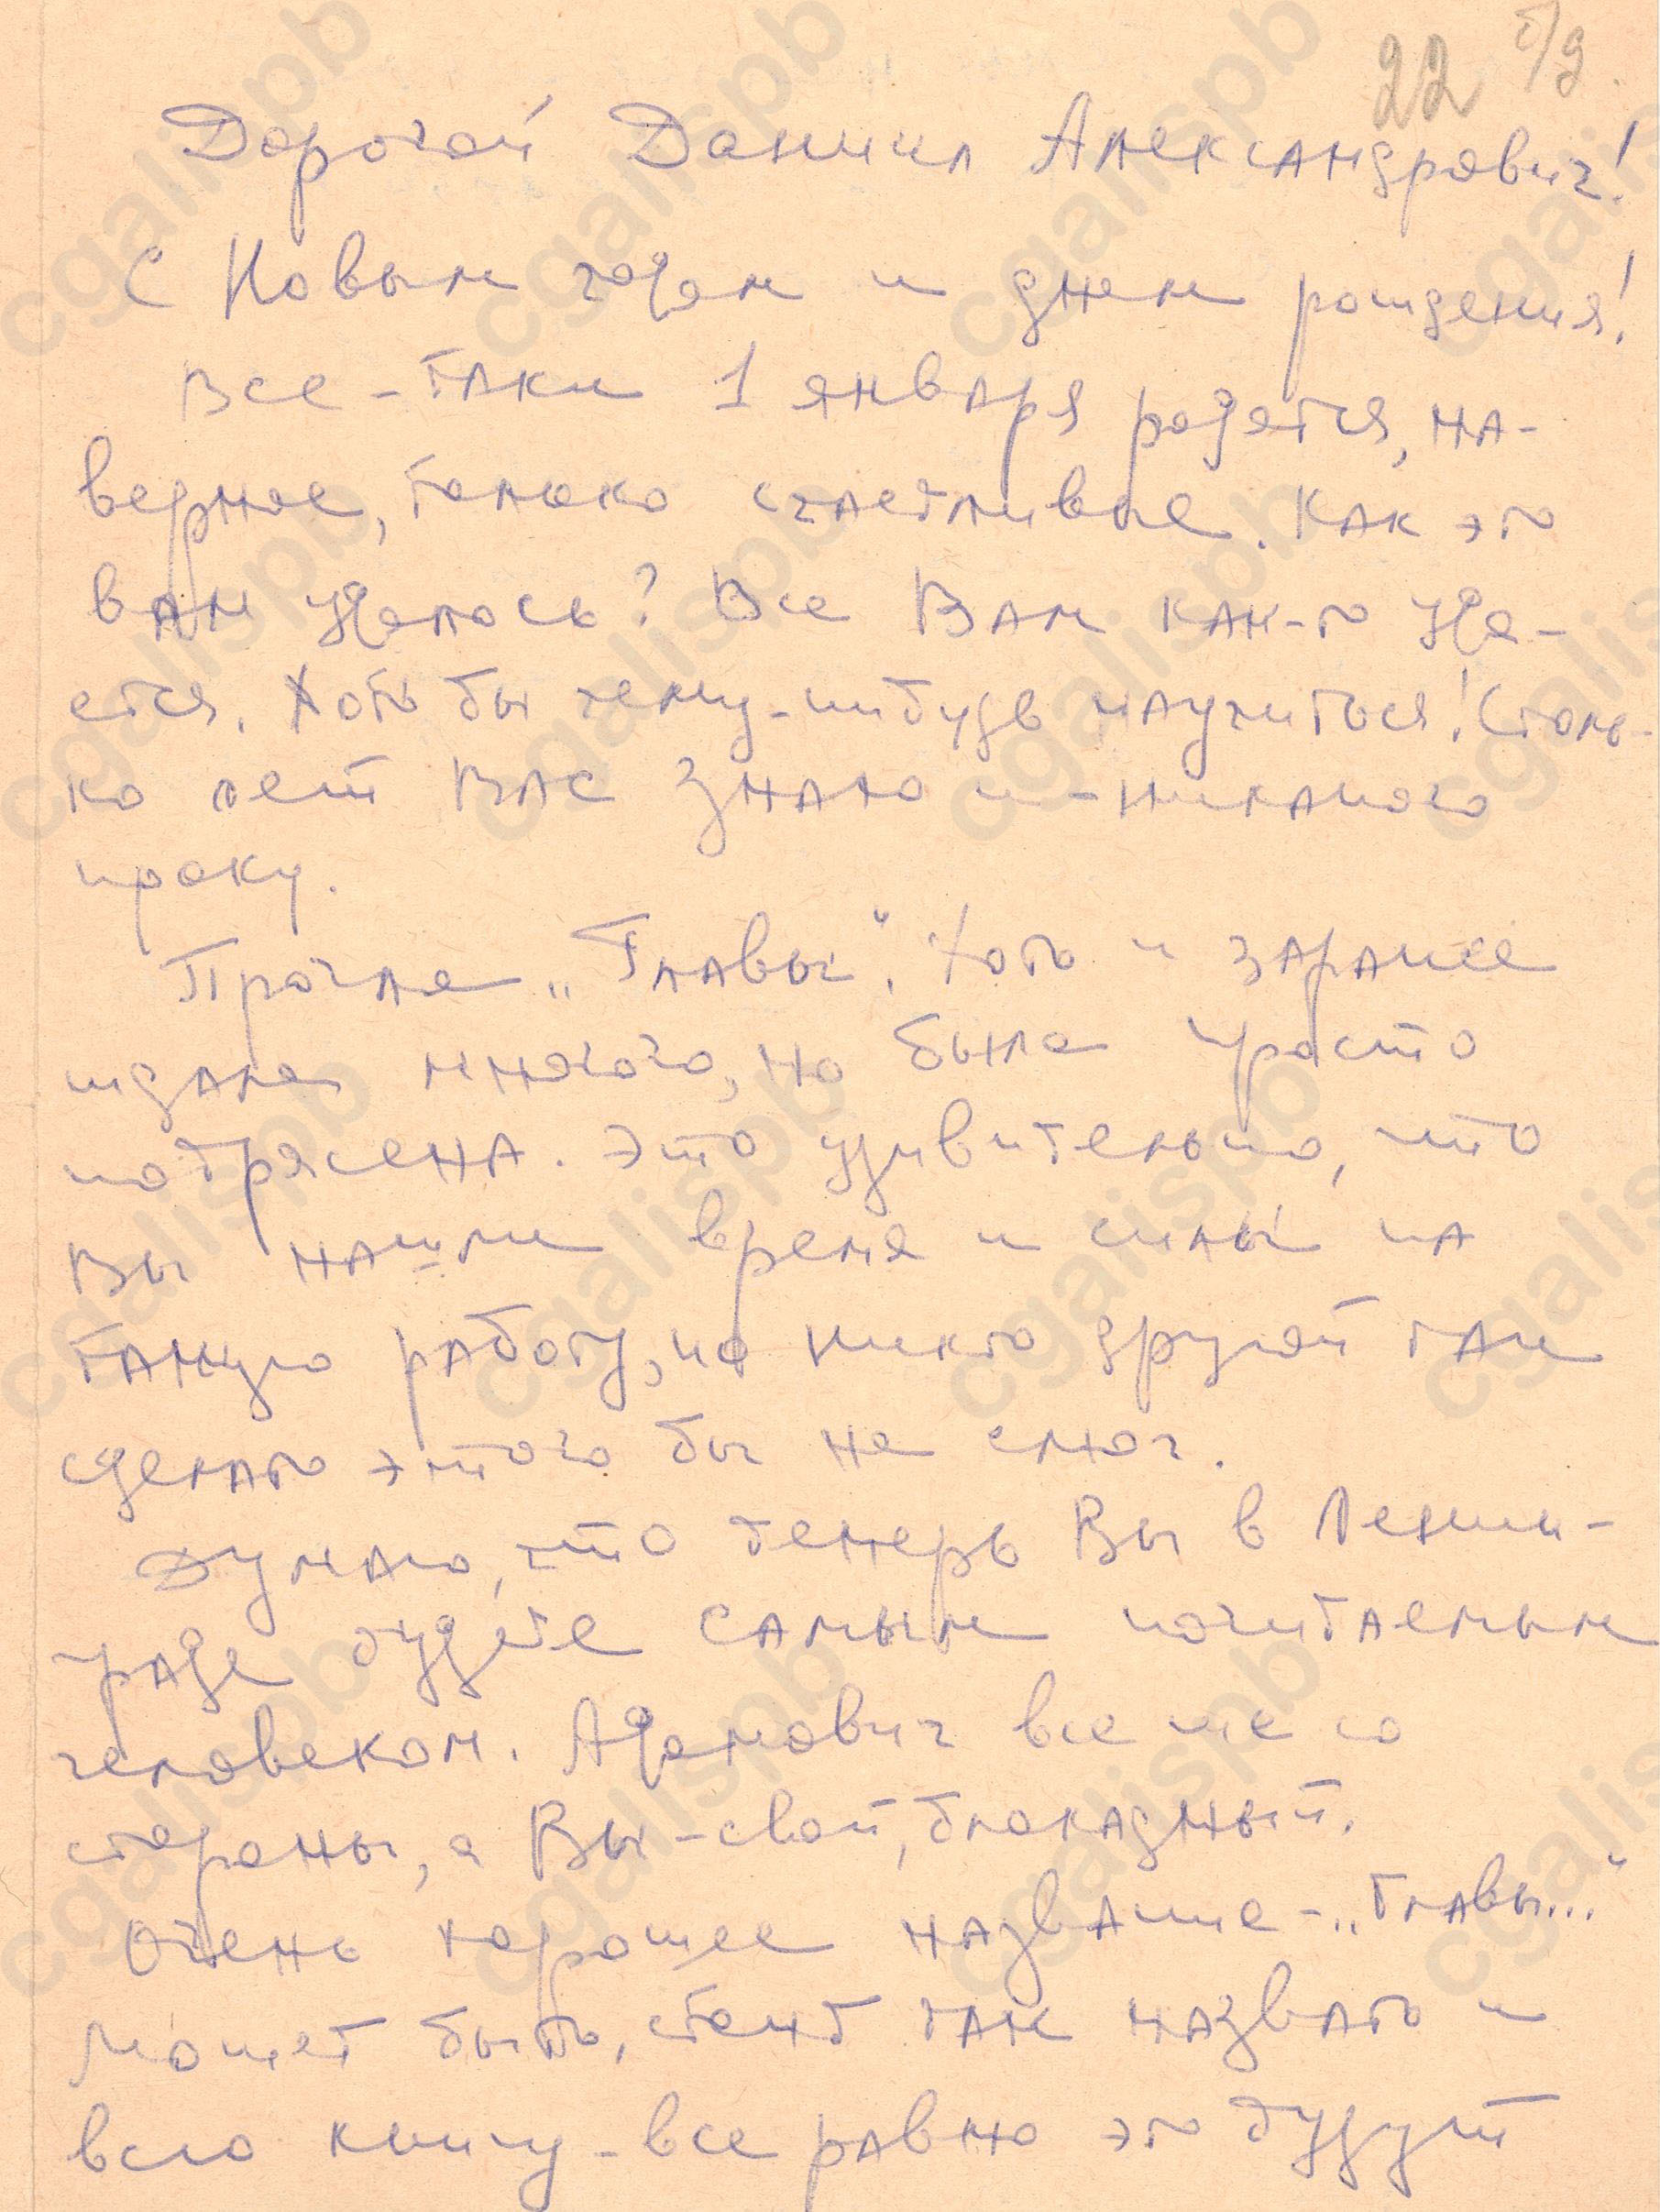 22 б/д
Дорогой Даниил Александрович!
С Новым годом и днем рождения!
Все-таки 1 января родятся, на-
верное, только счастливые. Как это
вам удалось? Все Вам как-то уда-
ется. Хоть бы чему-нибудь научиться! Столь-
ко лет Вас знаю и - никакого
проку.
Прочла „Главы". Хоть и заранее
ждала многого, но была просто
потрясена. Это удивительно, что
Вы нашли время и силы на
такую работу, но никто другой так
сделать этого бы не смог.
Думаю, что теперь Вы в Ленин-
граде будете самым почитаемым
человеком. Адамович все же со
стороны, а Вы - свой, блокадный.
Очень хорошее название - „Главы..."
Может быть, стоит так назвать и
всю книгу - все равно это будут